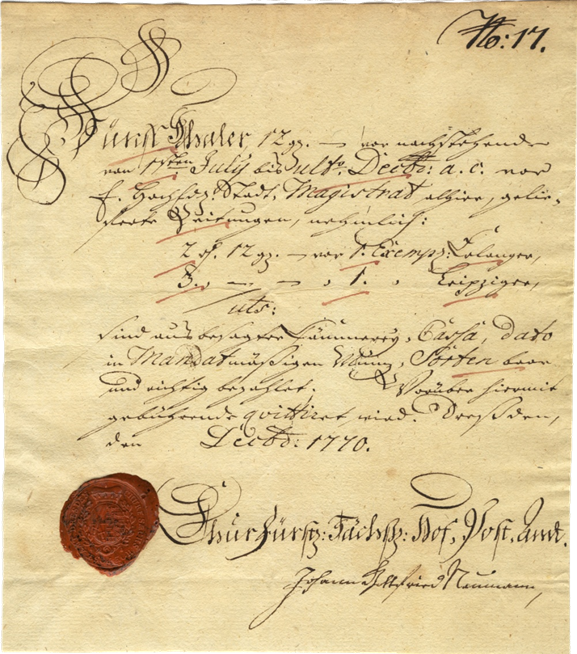 No: 17.
Fünff Thaler 12 gr. — vor nachstehende
von 1sten July bis ulto. Decbr: a. c. vor
E. Hochedl. Stadt, Magistrat alhier, gelie-
ferte Zeitungen, nehmlich:
2 rf. 12 gr. — vor 1. Exempl: Erlanger,
3. „ — „ — „ 1. „ Leipziger,
uts:
sind aus besagter Cämmerey, Cassa, dato
in Mandatmäßigen Müntz, Sorten baar
und richtig bezahlet. Worüber hiermit
gebührende qvittiret wird. Dreßden,
den Decbr: 1770.
Churfürstl: Sächß: Hof, Post, Amt.
Johann Gottfried Neumann,